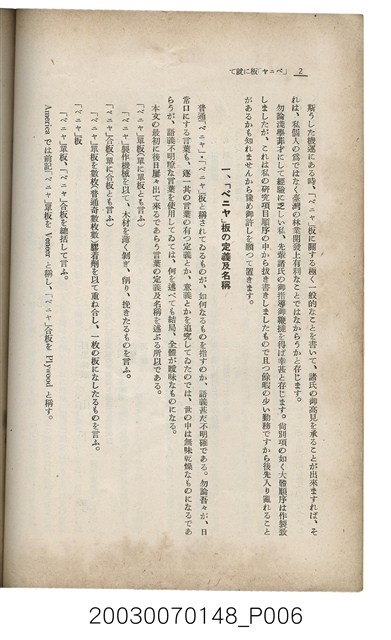 2 「ベニヤ」板に就て
斯うした機運にある時、「ベニヤ」板に關する極く一般的なことを書いて、諸氏の御高見を承ることが出來ますれば、そ
れは、私個人の爲ではなく臺灣の林業開發上有利なことではなからうかと存じます。
勿論淺學菲才にして經驗に乏しい私、先輩諸氏の御指導御鞭撻を得ば幸甚と存じます。尙別項の如く大體順序は作製致
しましたが、これは私の研究項目順序の中から拔き書きしましたもので且つ餘暇の少い勤務ですから後先入り亂れること
があるかも知れませんから豫め御許しを願つて置きます。
一、「ベニヤ」板の定義及名稱
普通「ベニヤ」・「ベニヤ」板と稱されてゐるものが、如何なるものを指すのか、語義甚だ不明確である。勿論吾々が、日
常口にする言葉も、逐一其の言葉の有つ定義とか、意義とかを追究してゐたのでは、世の中は無味乾燥なものになるであ
らうが、語義不明瞭な言葉を使用してゐては、何を述べても結局、全體が曖昧なものになる。
本文の最初に後日屢々出て來るであらう言葉の定義及名稱を述ぶる所以である。
「ベニヤ」單板(單に單板とも言ふ)
「ベニヤ」製作機械を以て、木材を薄く剝ぎ、削り、挽きたるものを言ふ。
「ベニヤ」合板(單に合板とも言ふ)
「ベニヤ」單板を數枚(普通奇數枚數)膠着劑を以て重ね合し、一枚の板になしたるものを言ふ。
「ベニヤ」板
「ベニヤ」單板、「ベニヤ」合板を總括して言ふ。
America では前記「ベニヤ」單板を Veneer と稱し、「ベニヤ」合板を Plywood と稱す。
20030070148_P006